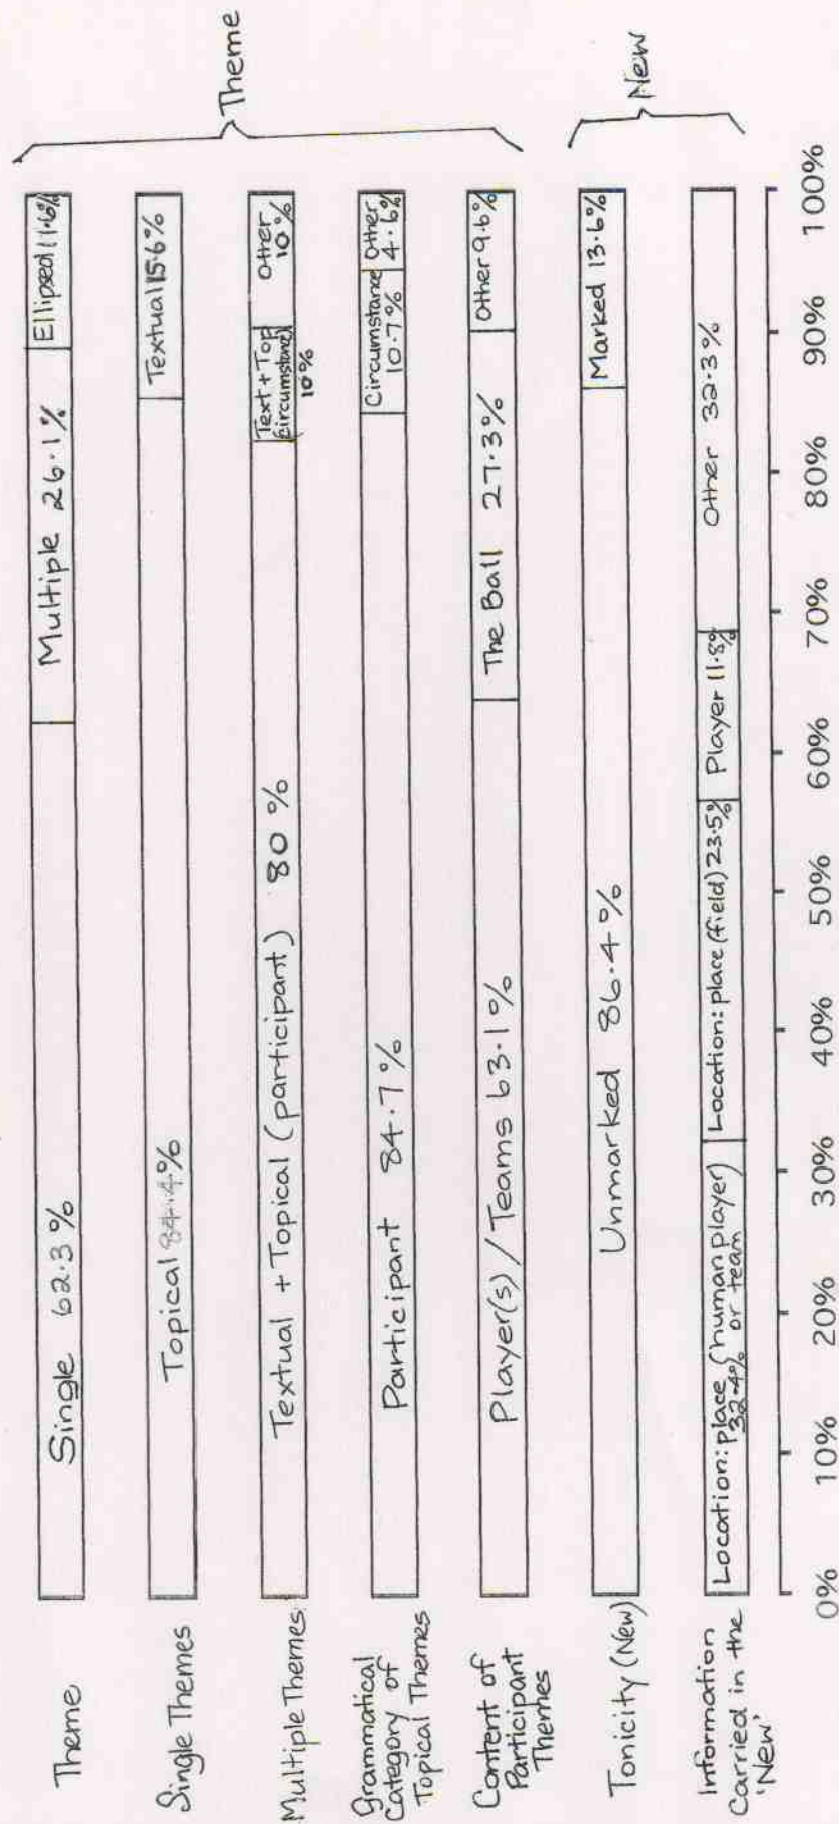 Theme
Single 62.3%
Multiple 26.1%
Ellipsed 11.6%
Single Themes
Topical 84.4%
Textual 15.6%
Multiple Themes
Textual + Topical (participant) 80%
Text + Top
(circumstance)
10%
Other
10%
Grammatical
Category of
Topical Themes
Participant 84.7%
Circumstance
10.7%
Other
4.6%
Content of
Participant
Themes
Player(s) / Teams 63.1%
The Ball 27.3%
Other 9.6%
Theme
Tonicity (New)
Unmarked 86.4%
Marked 13.6%
Information
Carried in the
'New'
Location: place (human player)
32.4% or team
Location: place (field) 23.5%
Player 11.8%
Other 32.3%
New
0% 10% 20% 30% 40% 50% 60% 70% 80% 90% 100%